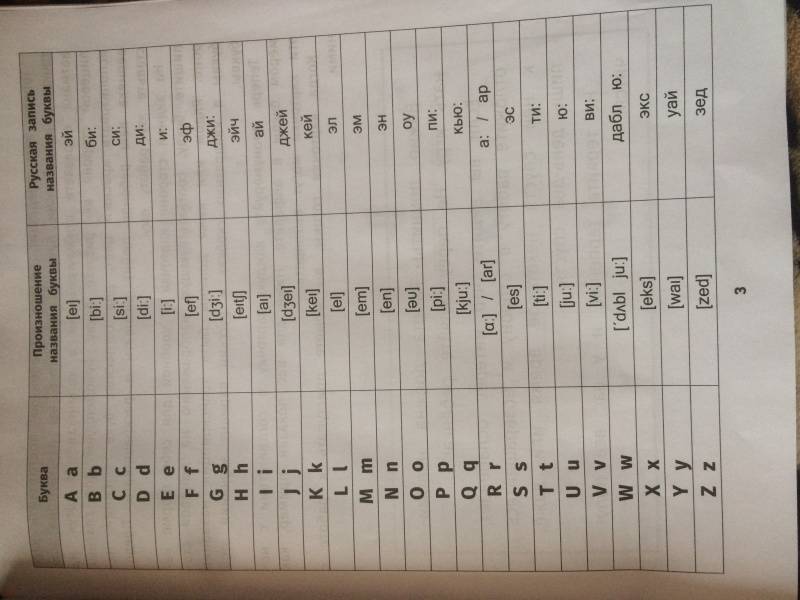 Буква Произношение названия буквы Русская запись названия буквы
A a [eɪ] эй
B b [bi:] би:
C c [si:] си:
D d [di:] ди:
E e [i:] и:
F f [ef] эф
G g [dʒi:] джи:
H h [eɪtʃ] эйч
I i [aɪ] ай
J j [dʒeɪ] джей
K k [keɪ] кей
L l [el] эл
M m [em] эм
N n [en] эн
O o [əu] оу
P p [pi:] пи:
Q q [kju:] кью:
R r [ɑ:] / [ar] а: / ар
S s [es] эс
T t [ti:] ти:
U u [ju:] ю:
V v [vi:] ви:
W w [ʹdʌbl ju:] дабл ю:
X x [eks] экс
Y y [waɪ] уай
Z z [zed] зед
3